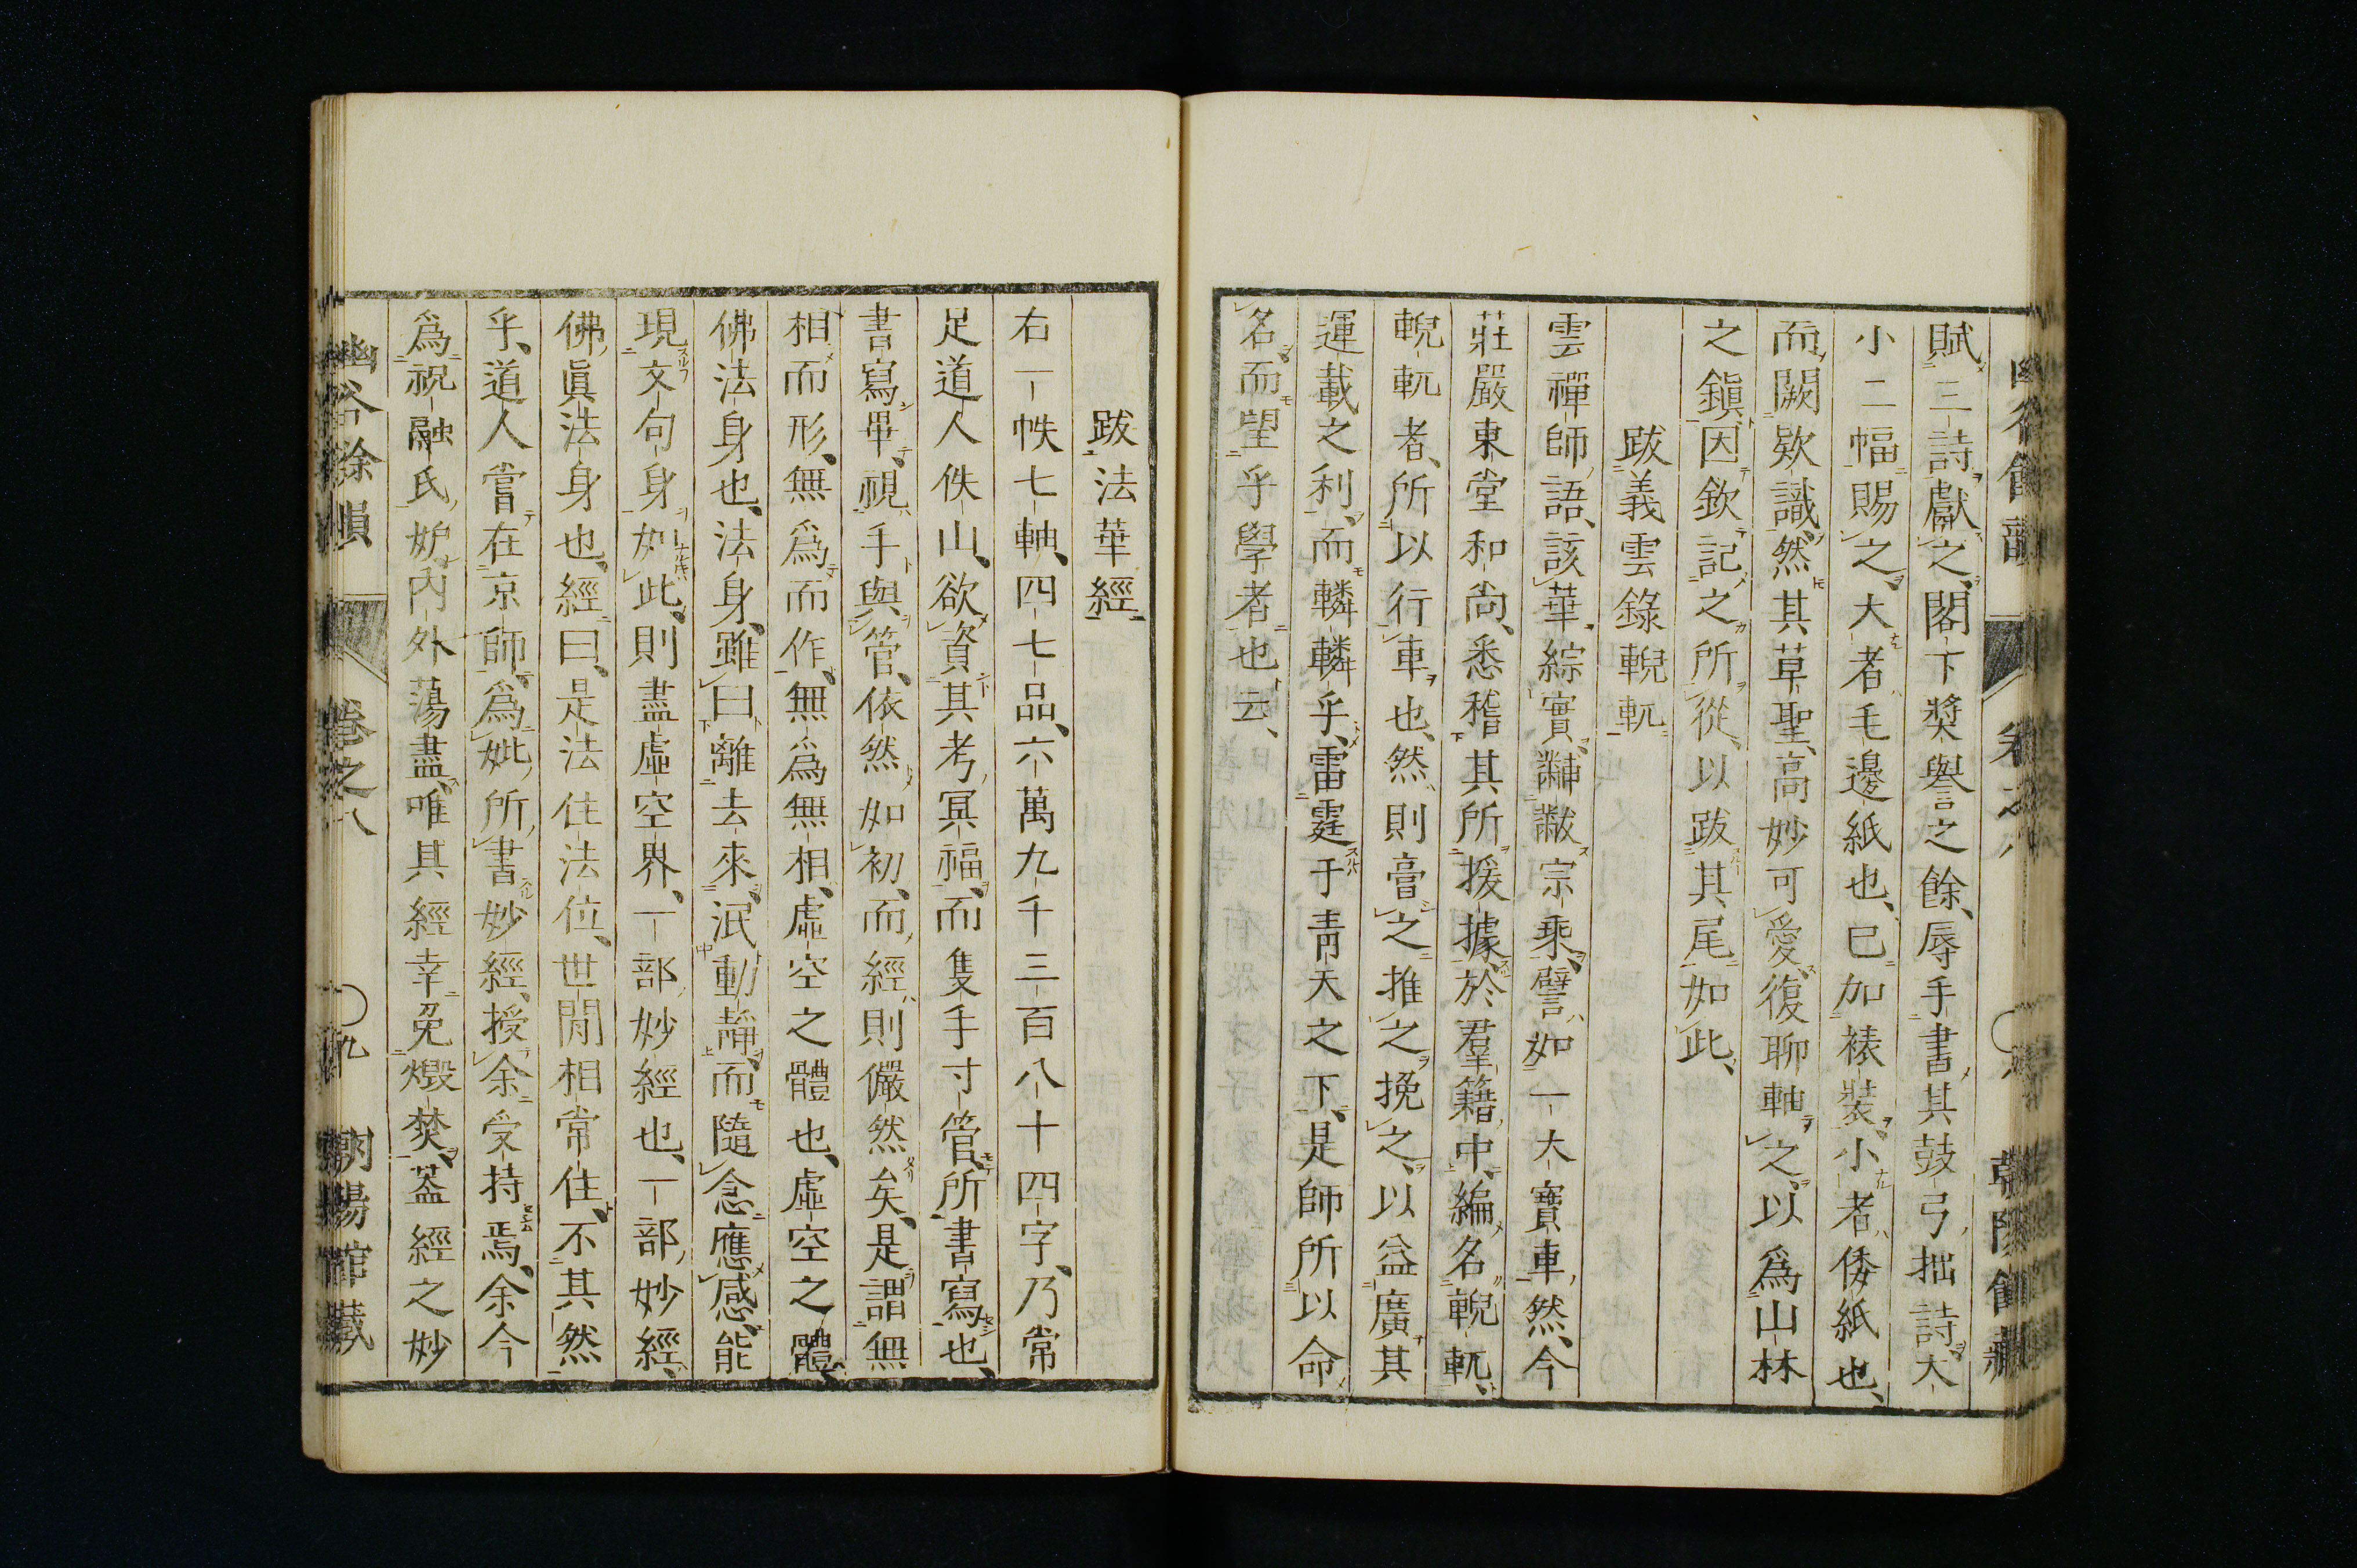 賦三詩獻之、閣下獎譽之餘、辱手書其鼓弓拙詩大
小二幅賜之、大者毛邊紙也、已加裱裝、小者倭紙也、
而闕欵識、然其草聖、高妙可愛、復聊軸之、以爲山林
之鎭、因欽記之所從、以跋其尾如此、
跋義雲錄輗軏
雲禪師語、該華綜實、黼黻宗乘、譬如一大寶車、然、今
莊嚴東堂和尚、悉稽其所援據、於羣籍中、編名輗軏、
輗軏者、所以行車也、然則膏之推之挽之、以益廣其
運載之利、而轔轔乎、雷霆于靑天之下、是師所以命
名而望乎學者也云、
跋法華經
右一帙七軸、四七品、六萬九千三百八十四字、乃常
足道人佚山、欲資其考冥福、而隻手寸管、所書寫也、
書寫畢、視手與管、依然如初、而經則儼然矣、是謂無
相而形、無爲而作、無爲無相、虛空之體也、虛空之體、
佛法身也、法身、雖曰離去來、泯動靜、而隨念應感、能
現文句身如此、則盡虛空界、一部妙經也、一部妙經、
佛眞法身也、經曰、是法住法位、世閒相常住、不其然
乎、道人嘗在京師、爲妣所書妙經、授余受持焉、余今
爲祝融氏妒、內外蕩盡、唯其經幸免燬焚、葢經之妙
幽谷餘韻 卷之八 〇九 朝陽館藏